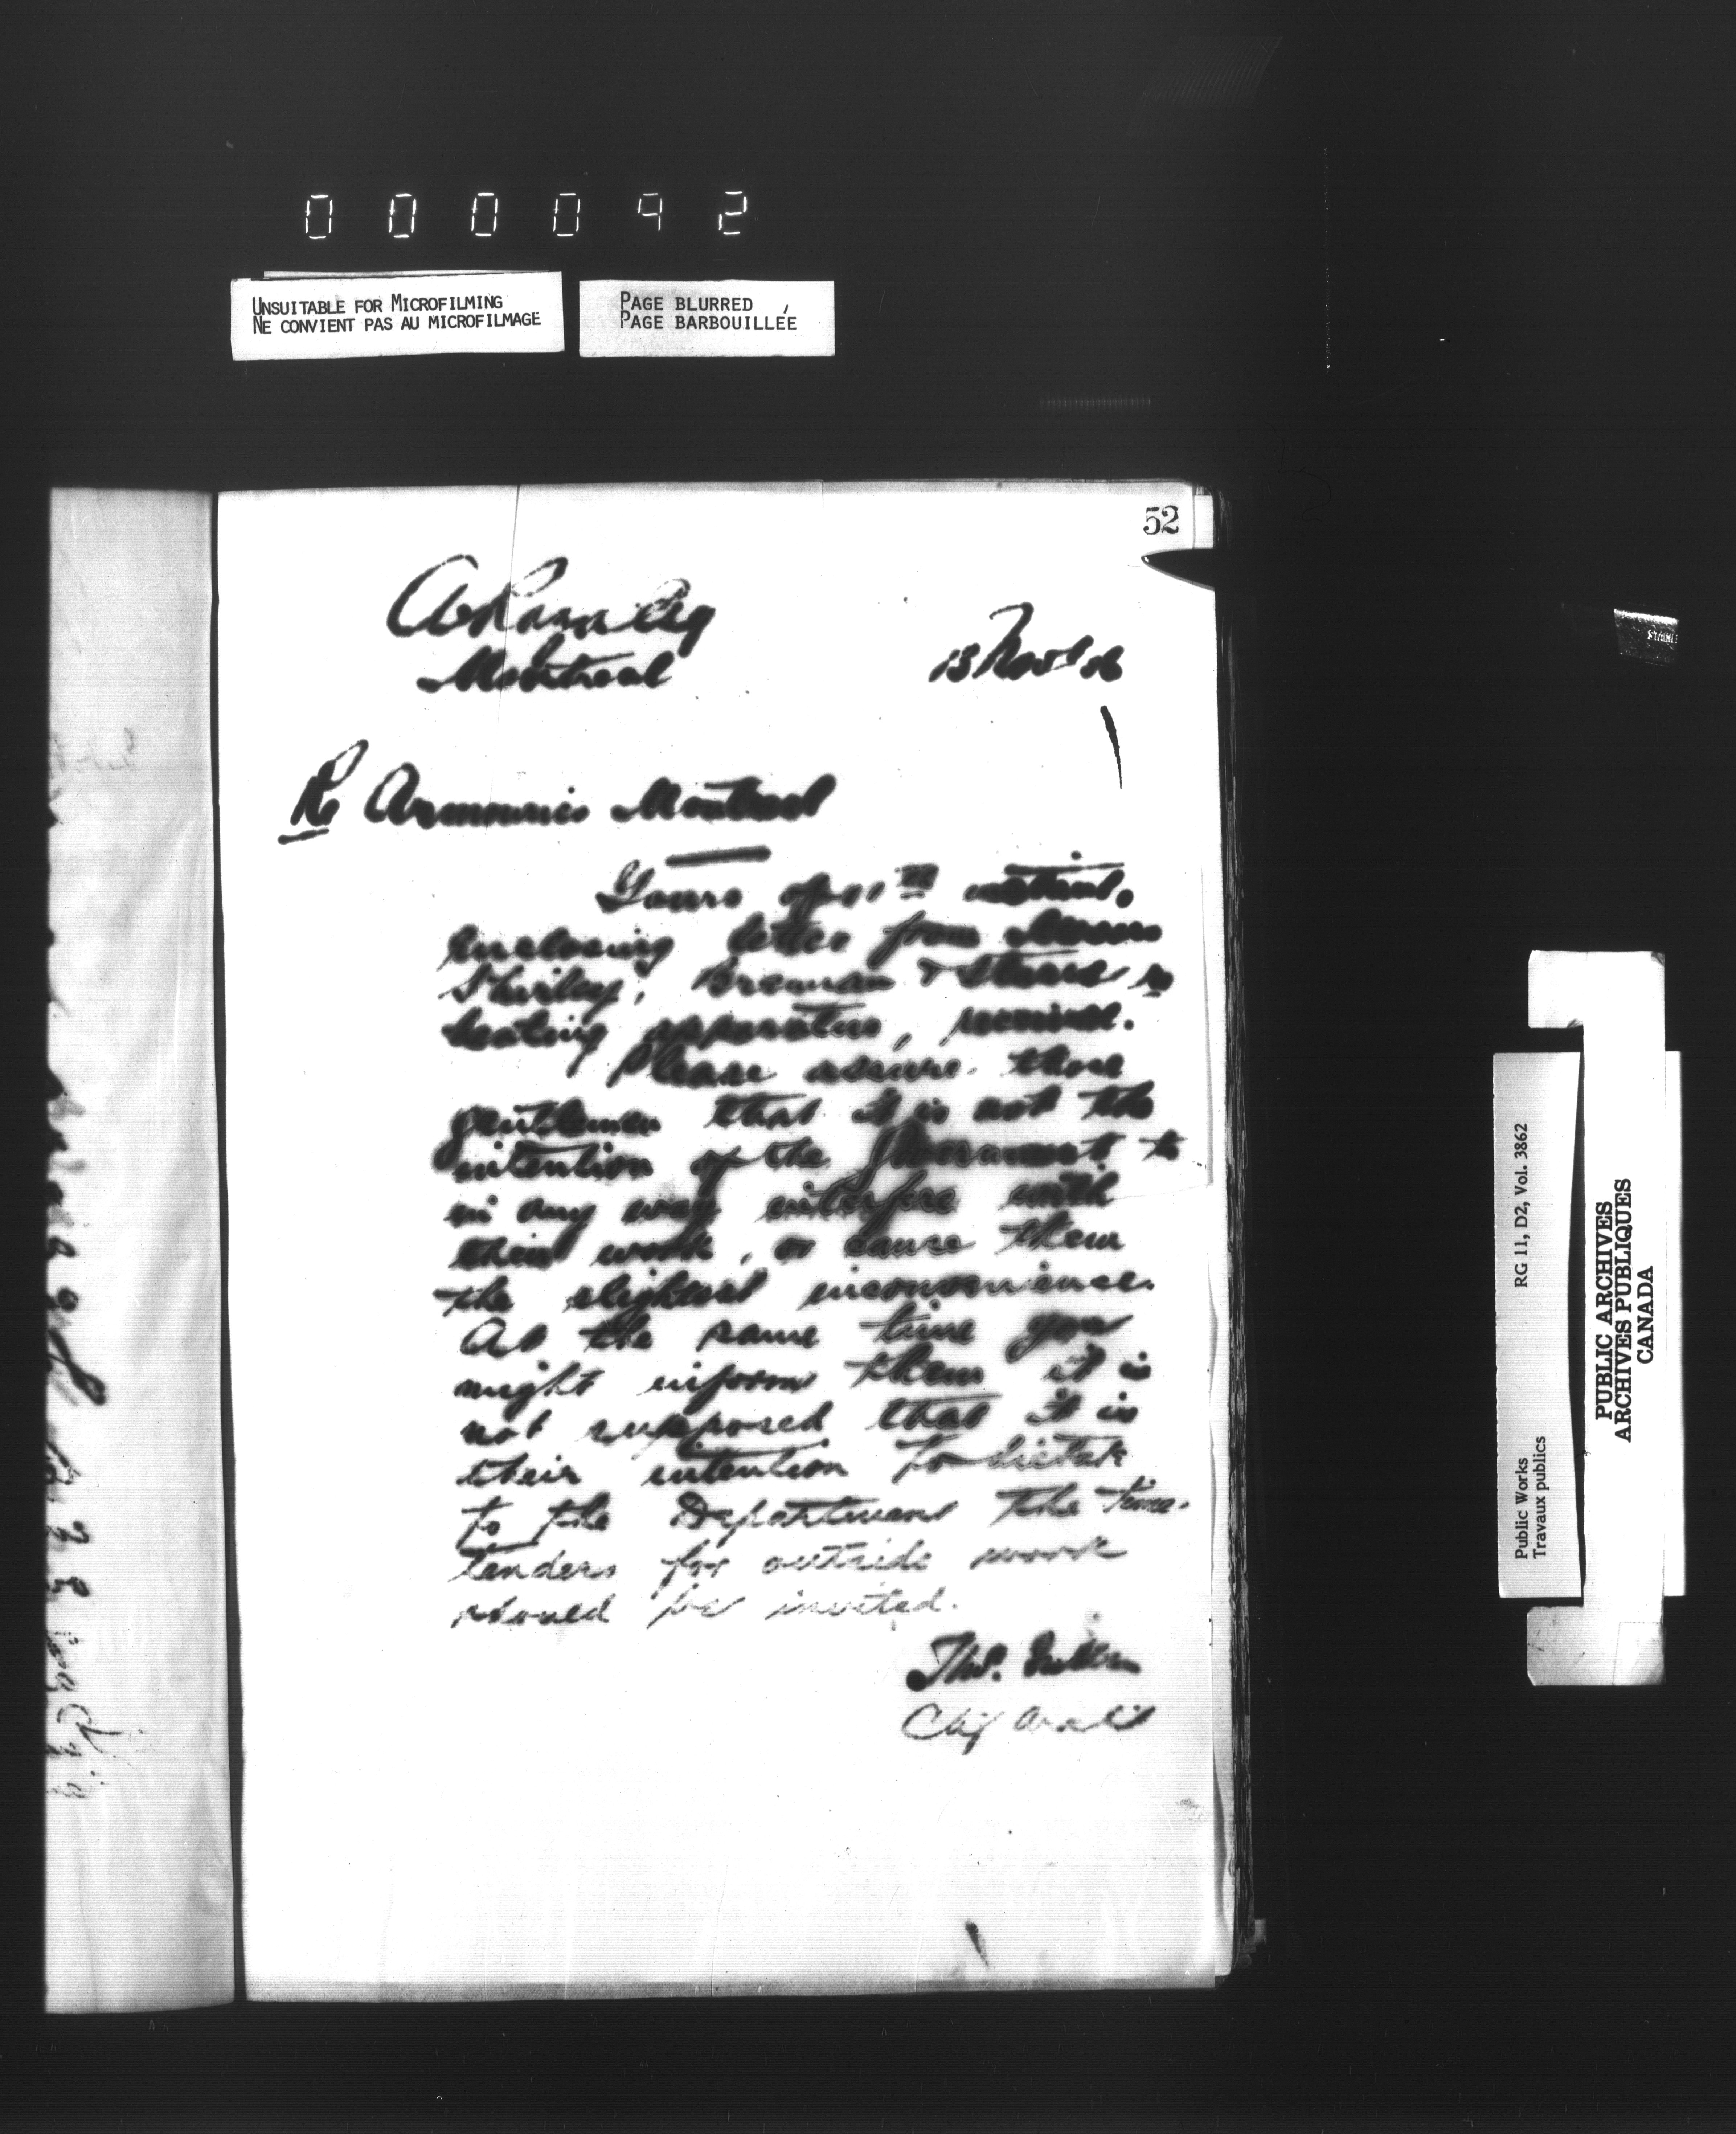 000092
UNSUITABLE FOR MICROFILMING
NE CONVIENT PAS AU MICROFILMAGE
PAGE BLURRED
PAGE BARBOUILLÉE
52
Montreal
13 Nov
Re Armouries Montreal
Yours of 11th instant,
enclosing letter from Messrs
Shirley, Brennan & re
heating apparatus, received.
Please assure those
gentlemen that it is not the
intention of the Government to
in any way interfere with
their work, or cause them
the slightest inconvenience.
At the same time you
might inform them it is
not supposed that it is
their intention to dictate
to the Department the time
tenders for outside work
should be invited.
Thos. Fuller
Chf Archt
Public Works
Travaux publics
RG 11, D2, Vol. 3862
PUBLIC ARCHIVES
ARCHIVES PUBLIQUES
CANADA